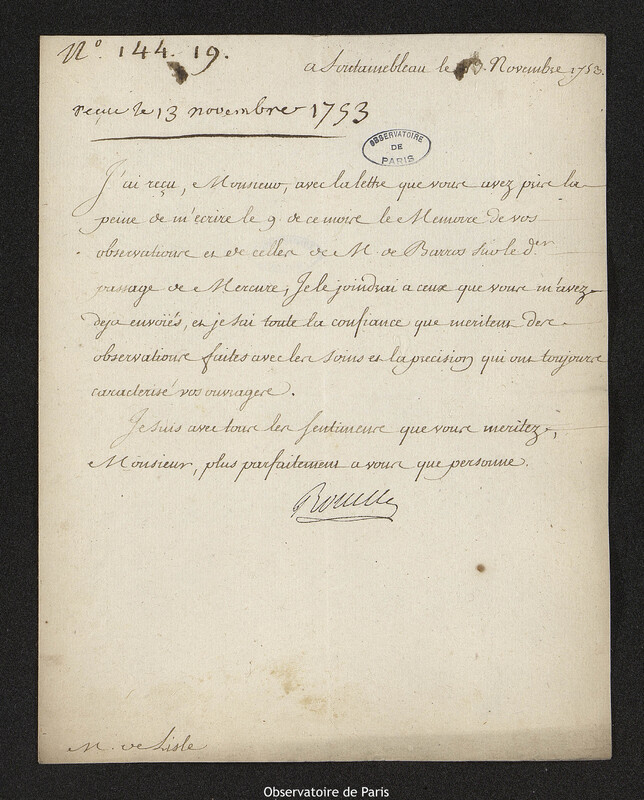 N.° 144. 19.
a Fontainebleau le 13. Novembre 1753.
reçu le 13 novembre 1753
OBSERVATOIRE
DE
PARIS
J'ai reçu, Monsieur, avec la lettre que vous avez prise la
peine de m'écrire le 9. de ce mois le Memoire de vos
observations et de celles de M. de Barros sur le d.er
passage de Mercure, Je le joindrai a ceux que vous m'avez
deja envoiés, et je sai toute la confiance que meritent des
observations faites avec les soins et la precision qui ont toujours
caracterisé vos ouvrages.
Je suis avec tous les sentimens que vous meritez,
Monsieur, plus parfaitement a vous que personne.
Rouillé
M. de Lisle
Observatoire de Paris